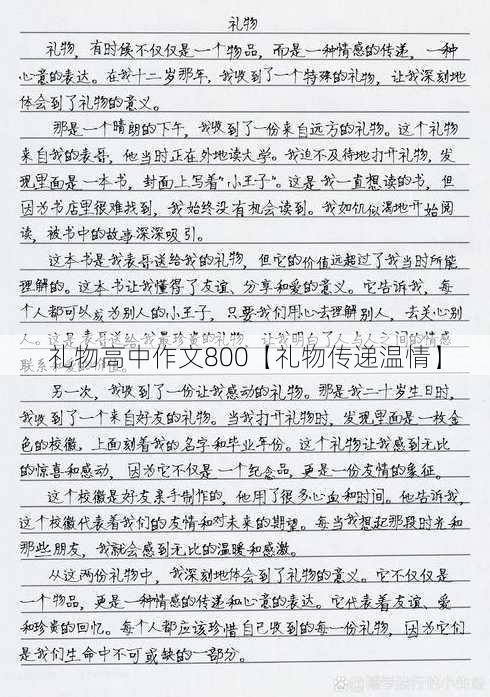 礼物
礼物，有时候不仅仅是一个物品，而是一种情感的传递，一种
心意的表达。在我十二岁那年，我收到了一个特殊的礼物，让我深刻地
体会到了礼物的意义。
那是一个晴朗的下午，我收到了一份来自远方的礼物。这个礼物
来自我的表哥，他当时正在外地读大学。我迫不及待地打开礼物，发
现里面是一本书，封面上写着“小王子”。这是我一直想读的书，但
因为书店里很难找到，我始终没有机会读到。我如饥似渴地开始阅
读，被书中的故事深深吸引。
这本书是我表哥送给我的礼物，但它的价值远超过了我当时所能
理解的。这本书让我懂得了友谊、分享和爱的意义。它告诉我，每
个人都可以成为别人的小王子，只要我们用心去理解别人，去关心别
人。这是表哥送给我最珍贵的礼物，让我明白了人与人之间的情感
礼物高中作文800【礼物传递温情】
联系
另一次，我收到了一份让我感动的礼物。那是我二十岁生日时，
我收到了一个来自好友的礼物。当我打开礼物时，发现里面是一枚金
色的校徽，上面刻着我的名字和毕业年份。这个礼物让我感到无比
的惊喜和感动，因为它不仅是一个纪念品，更是一份友情的象征。
这个校徽是好友亲手制作的，他用了很多心血和时间。他告诉我，
这个校徽代表着我们的友情和对未来的期望。每当我想起那段时光和
那些朋友，我就会感到无比的温暖和感激。
从这两份礼物中，我深刻地体会到了礼物的意义。它不仅仅是
一个物品，更是一种情感的传递和心意的表达。它代表着友谊、爱
和珍贵的回忆。每个人都应该珍惜自己收到的每一份礼物，因为它们
是我们生命中不可或缺的一部分。